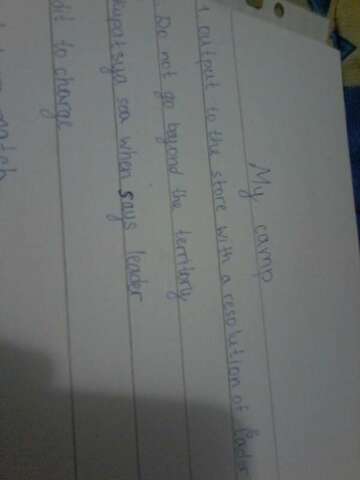 My camp
1 output to the store with a resolution of leader
Do not go beyond the territory
kupatsya sea when says leader
dit to charge
match